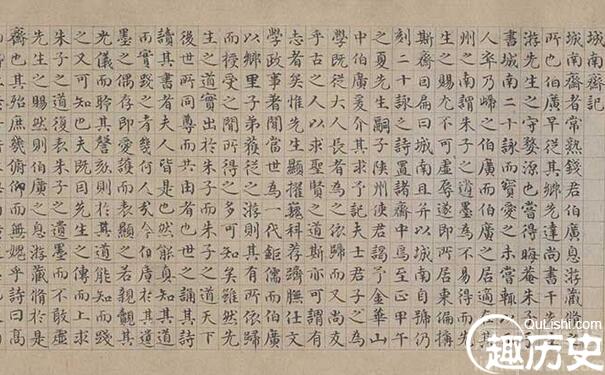 城南齋記
城南齋者常熟錢君伯廣息游藏脩之
所也伯廣早從其鄉先達尚書干先生
游先生之守婺源也嘗得晦菴朱子手
書城南二十詠而寶愛之未嘗輒以示
人卒乃歸之伯廣而伯廣之居適在其
州之南謂朱子之遺墨不易得而先
生之賜尤不可虛辱遂即所居東偏搆
斯齋因扁曰城南且并以城南自號仍
刻二十詠之詩置諸齋中焉至正甲午
之夏先生嗣子陝州使君謁予金華山
中伯廣爰介其求予記夫士君子之為
學既從大人長者為之依歸而又尚友
乎古之人以求聖賢之道斯亦可謂有
志者矣惟先生顯擢巍科荐躋膴仕文
學政事著聞當世為一代鉅儒而伯廣
以鄉里子弟獲從之游則其有所依歸
而授受之間所得之多可知矣雖然先
生之道實出於朱子而朱子之道天下
後世所同尊而共由也誦其詩
讀其書者夫人皆是也然能真知其道
而實踐之者幾何人哉今伯廣於其遺
墨之偶存即愛護而表顯之若親覩其
光儀而聆其謦欬則於其道能知而踐
之又可知也夫既因先生之傳而上求
朱子之道復表朱子之遺墨而不敢虛
先生之賜然則伯廣之息游藏脩於是
齋也其殆庶幾俯仰而無媿乎詩曰高
QuLishi.com
趣历史